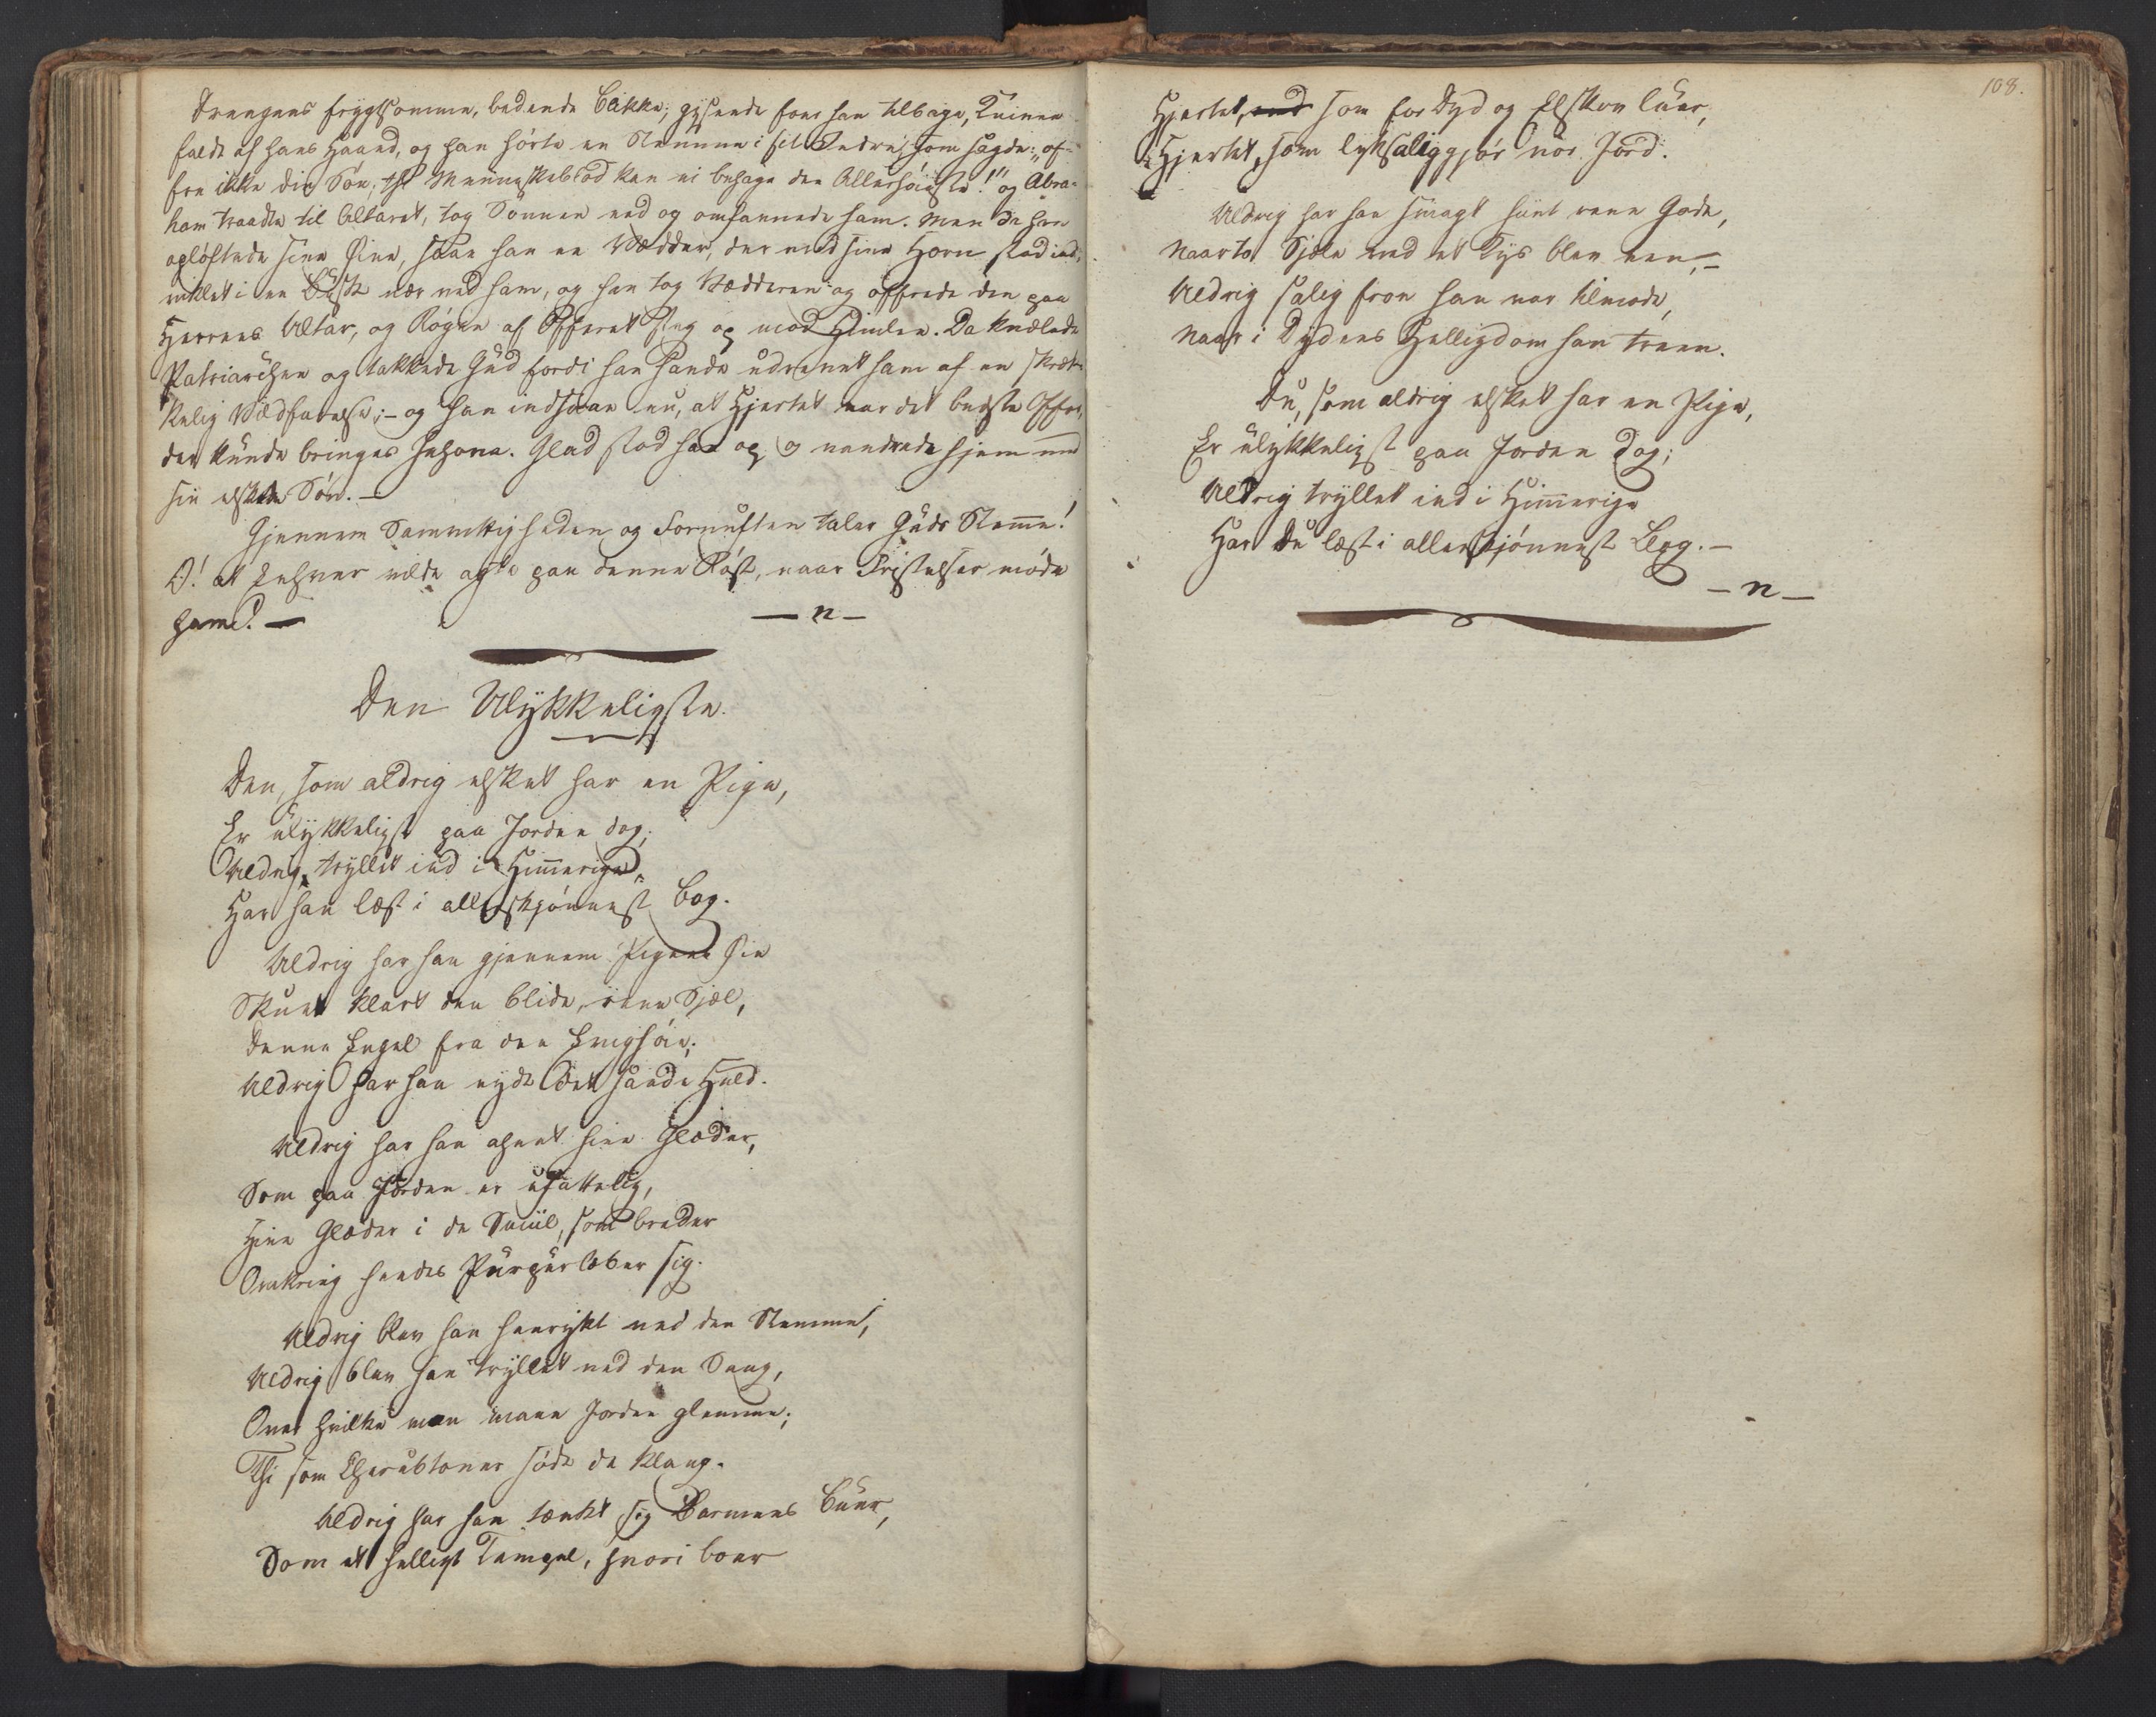 Drengens frygtsomme, bedende Blikke; gysende foer han tilbage, Kniven
faldt af hans Haand, og han hørte en Stemme i sit Indre, som sagde: „of-
fre ikke din Søn, thi Menneskeblod kan ei behage den Allerhøieste!" og Abra-
ham traadte til Altaret, tog Sønnen ned og omfavnede ham. Men da han
opløftede sine Øine, saae han en Vædder, der med sine Horn stod ind-
viklet i en Busk nær ved ham, og han tog Vædderen og offrede den paa
Herrens Altar, og Røgen af Offeret steg op mod Himlen. Da knælede
Patriarchen og takkede Gud fordi han havde udrevet ham af en skræk-
kelig Vildfarelse; – og han indsaae nu, at Hjertet var det bedste Offer,
der kunde bringes Jehova. Glad stod han op, og vandrede hjem med
sin elskte Søn. –
Gjennem Samvittigheden og Fornuften taler Guds Stemme!
O! at Enhver vilde agte paa denne Røst, naar Fristelser møde
ham! –
– n –
Den Ulykkeligste.
Den, som aldrig elsket har en Pige,
Er ulykkeligst paa Jorden dog;
Aldrig, tryllet ind i Himmerige,
Har han læst i allerskjønnest Bog.
Aldrig har han gjennem Pigens Øie
Skuet klart den blide, rene Sjæl,
Denne Engel fra den Evighøie;
Aldrig har han nydt det sande Held.
Aldrig har han ahnet hine Glæder,
Som paa Jorden er ufattelig,
Hine Glæder i de Smiil, som breder
Omkring hendes Purpurlæber sig.
Aldrig blev han henrykt ved den Stemme,
Aldrig blev han tryllet ved den Sang,
Over hvilke man maae Jorden glemme;
Thi som Cherubtoner sødt de klang.
Aldrig har han tænkt sig Barmens Buer,
Som et helligt Tempel, hvori boer
108.
Hjertet, ved som for Dyd og Elskov luer,
Hjertet, som lyksaliggjør vor Jord.
Aldrig har han smagt hiint rene Gode,
Naar to Sjæle ved et Kys blev een, –
Aldrig salig from han var tilmode,
Naar i Dydens Helligdom han treen.
Du, som aldrig elsket har en Pige,
Er ulykkeligst paa Jorden dog;
Aldrig tryllet ind i Himmerige
Har Du læst i allerskjønnest Bog. –
– n –